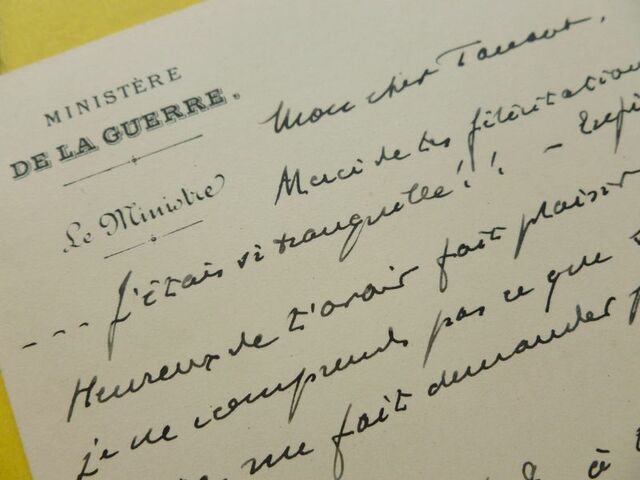 MINISTÈRE
DE LA GUERRE.
Le Ministre
Mon cher
Merci de tes félicitation
--- J'étais si tranquille!! - Enfi
Heureux de t'avoir fait plaisir
je ne comprends pas ce que
me fait demander
à